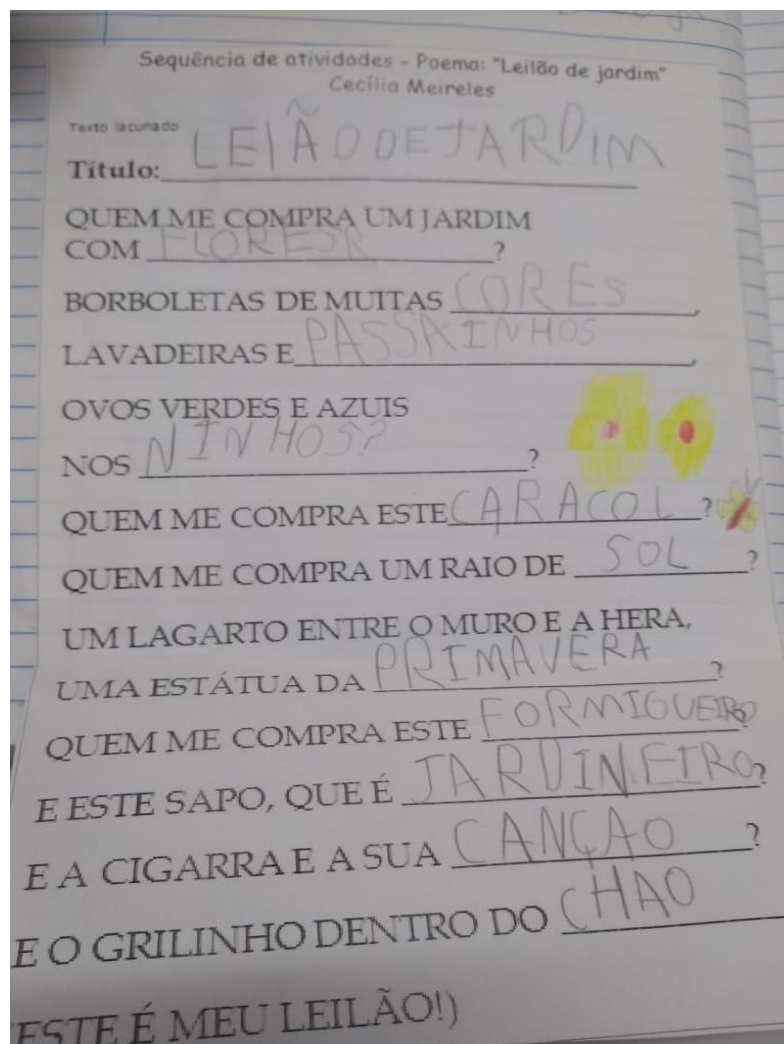 Sequência de atividades - Poema: "Leilão de jardim"
Cecília Meireles
Texto lacunado
Título: LEIÃO DE JARDIM
QUEM ME COMPRA UM JARDIM
COM FLORESR?
BORBOLETAS DE MUITAS CORES,
LAVADEIRAS E PASSAINHOS,
OVOS VERDES E AZUIS
NOS NINHOS? ?
QUEM ME COMPRA ESTE CARACOL?
QUEM ME COMPRA UM RAIO DE SOL?
UM LAGARTO ENTRE O MURO E A HERA,
UMA ESTÁTUA DA PRIMAVERA?
QUEM ME COMPRA ESTE FORMIGUEIRO?
E ESTE SAPO, QUE É JARDINEIRO?
E A CIGARRA E A SUA CANÇAO?
E O GRILINHO DENTRO DO CHAO
ESTE É MEU LEILÃO!)